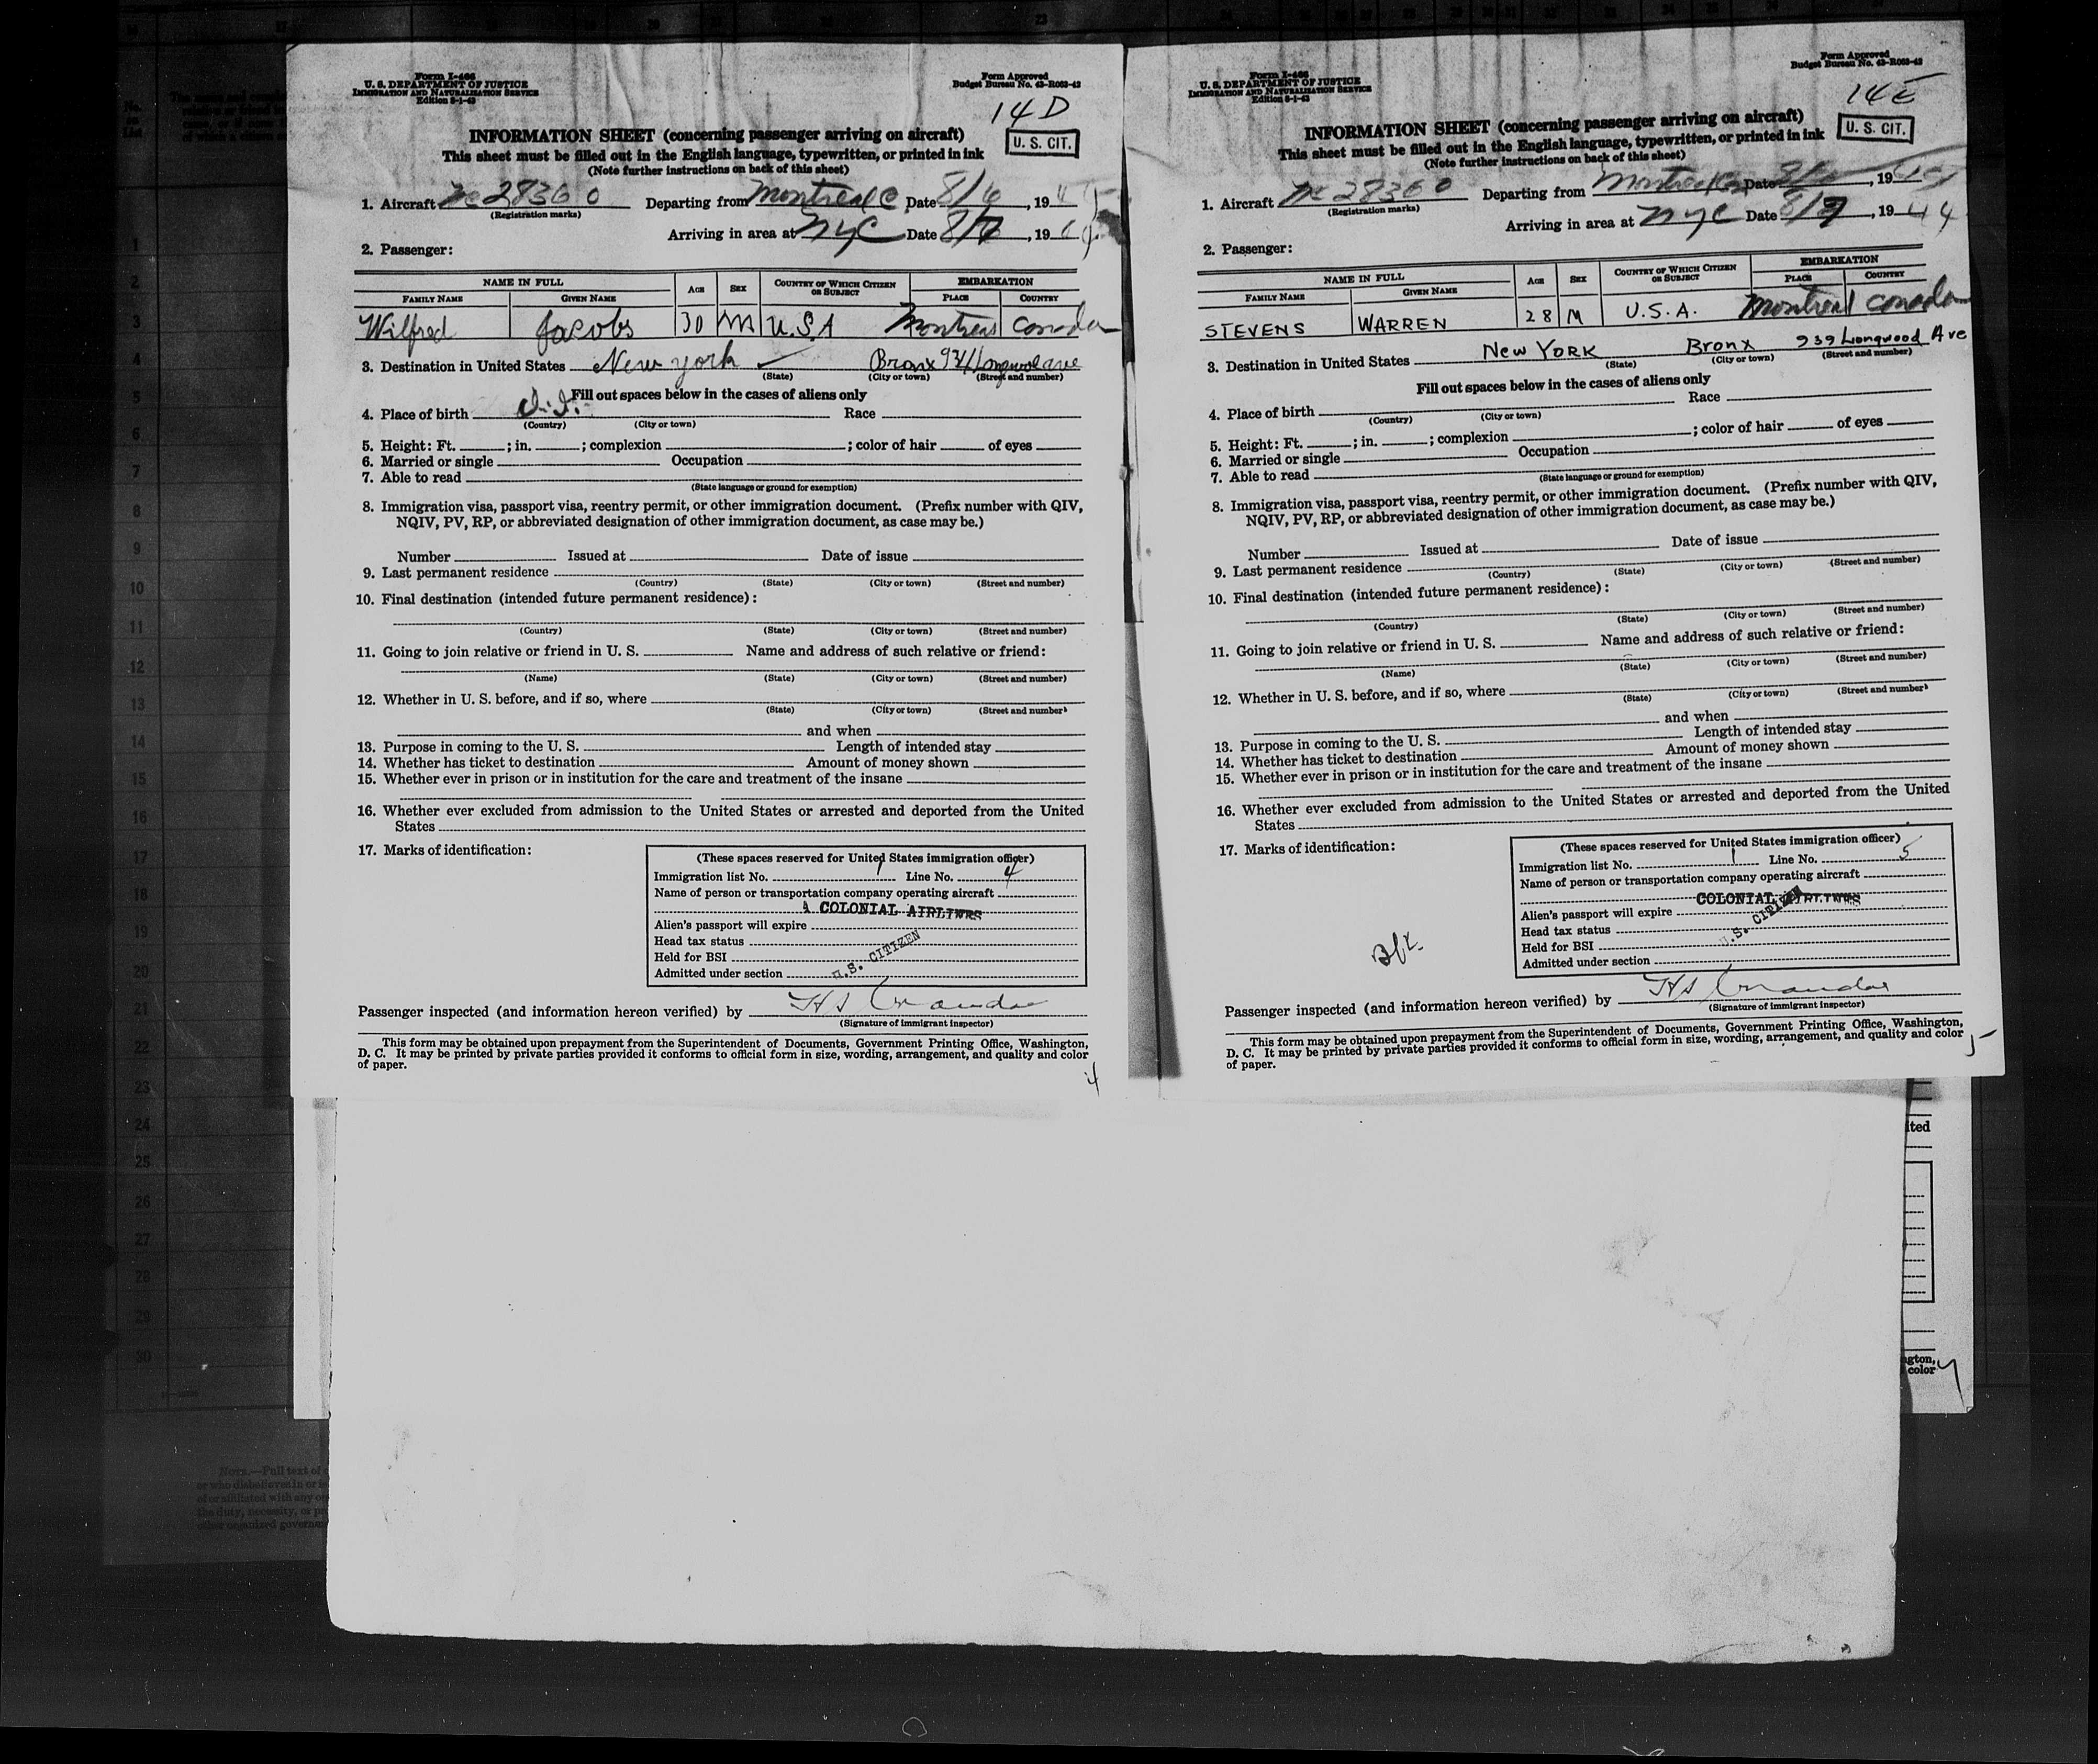 Form I-466
U. S. DEPARTMENT OF JUSTICE
IMMIGRATION AND NATURALIZATION SERVICE
Edition 5-1-43
Form Approved
Budget Bureau No. 43-R063-42
14 D
INFORMATION SHEET (concerning passenger arriving on aircraft)
U. S. CIT.
This sheet must be filled out in the English language, typewritten, or printed in ink
(Note further instructions on back of this sheet)
1. Aircraft Nc 28360 Departing from Montreal C Date 8/6, 19
(Registration marks)
Arriving in area at NYC Date 8/7, 19
2. Passenger:
NAME IN FULL AGE SEX COUNTRY OF WHICH CITIZEN OR SUBJECT EMBARKATION
FAMILY NAME GIVEN NAME PLACE COUNTRY
Wilfred Jacobs 30 M U.S.A Montreal Canada
3. Destination in United States New York Bronx 931 Longwood ave
(State) (City or town) (Street and number)
Fill out spaces below in the cases of aliens only
4. Place of birth Race
(Country) (City or town)
5. Height: Ft. ; in. ; complexion ; color of hair of eyes
6. Married or single Occupation
7. Able to read
(State language or ground for exemption)
8. Immigration visa, passport visa, reentry permit, or other immigration document. (Prefix number with QIV,
NQIV, PV, RP, or abbreviated designation of other immigration document, as case may be.)
Number Issued at Date of issue
9. Last permanent residence
(Country) (State) (City or town) (Street and number)
10. Final destination (intended future permanent residence):
(Country) (State) (City or town) (Street and number)
11. Going to join relative or friend in U. S. Name and address of such relative or friend:
(Name) (State) (City or town) (Street and number)
12. Whether in U. S. before, and if so, where
(State) (City or town) (Street and number)
and when
13. Purpose in coming to the U. S. Length of intended stay
14. Whether has ticket to destination Amount of money shown
15. Whether ever in prison or in institution for the care and treatment of the insane
16. Whether ever excluded from admission to the United States or arrested and deported from the United
States
17. Marks of identification:
(These spaces reserved for United States immigration officer)
Immigration list No. 1 Line No. 4
Name of person or transportation company operating aircraft
COLONIAL AIRLINES
Alien's passport will expire
Head tax status
Held for BSI
Admitted under section
U.S. CITIZEN
Passenger inspected (and information hereon verified) by
(Signature of immigrant inspector)
This form may be obtained upon prepayment from the Superintendent of Documents, Government Printing Office, Washington,
D. C. It may be printed by private parties provided it conforms to official form in size, wording, arrangement, and quality and color
of paper.
4
Form I-466
U. S. DEPARTMENT OF JUSTICE
IMMIGRATION AND NATURALIZATION SERVICE
Edition 5-1-43
Form Approved
Budget Bureau No. 43-R063-42
14 E
INFORMATION SHEET (concerning passenger arriving on aircraft)
U. S. CIT.
This sheet must be filled out in the English language, typewritten, or printed in ink
(Note further instructions on back of this sheet)
1. Aircraft Nc 28360 Departing from Montreal C Date 8/6, 19
(Registration marks)
Arriving in area at NYC Date 8/7, 1944
2. Passenger:
NAME IN FULL AGE SEX COUNTRY OF WHICH CITIZEN OR SUBJECT EMBARKATION
FAMILY NAME GIVEN NAME PLACE COUNTRY
STEVENS WARREN 28 M U.S.A. Montreal Canada
3. Destination in United States NEW YORK Bronx 939 Longwood Ave
(State) (City or town) (Street and number)
Fill out spaces below in the cases of aliens only
4. Place of birth Race
(Country) (City or town)
5. Height: Ft. ; in. ; complexion ; color of hair of eyes
6. Married or single Occupation
7. Able to read
(State language or ground for exemption)
8. Immigration visa, passport visa, reentry permit, or other immigration document. (Prefix number with QIV,
NQIV, PV, RP, or abbreviated designation of other immigration document, as case may be.)
Number Issued at Date of issue
9. Last permanent residence
(Country) (State) (City or town) (Street and number)
10. Final destination (intended future permanent residence):
(Country) (State) (City or town) (Street and number)
11. Going to join relative or friend in U. S. Name and address of such relative or friend:
(Name) (State) (City or town) (Street and number)
12. Whether in U. S. before, and if so, where
(State) (City or town) (Street and number)
and when
13. Purpose in coming to the U. S. Length of intended stay
14. Whether has ticket to destination Amount of money shown
15. Whether ever in prison or in institution for the care and treatment of the insane
16. Whether ever excluded from admission to the United States or arrested and deported from the United
States
17. Marks of identification:
(These spaces reserved for United States immigration officer)
Immigration list No. 1 Line No. 5
Name of person or transportation company operating aircraft
COLONIAL AIRLINES
Alien's passport will expire
Head tax status
Held for BSI
Admitted under section
U.S. CITIZEN
Passenger inspected (and information hereon verified) by
(Signature of immigrant inspector)
This form may be obtained upon prepayment from the Superintendent of Documents, Government Printing Office, Washington,
D. C. It may be printed by private parties provided it conforms to official form in size, wording, arrangement, and quality and color
of paper.
5